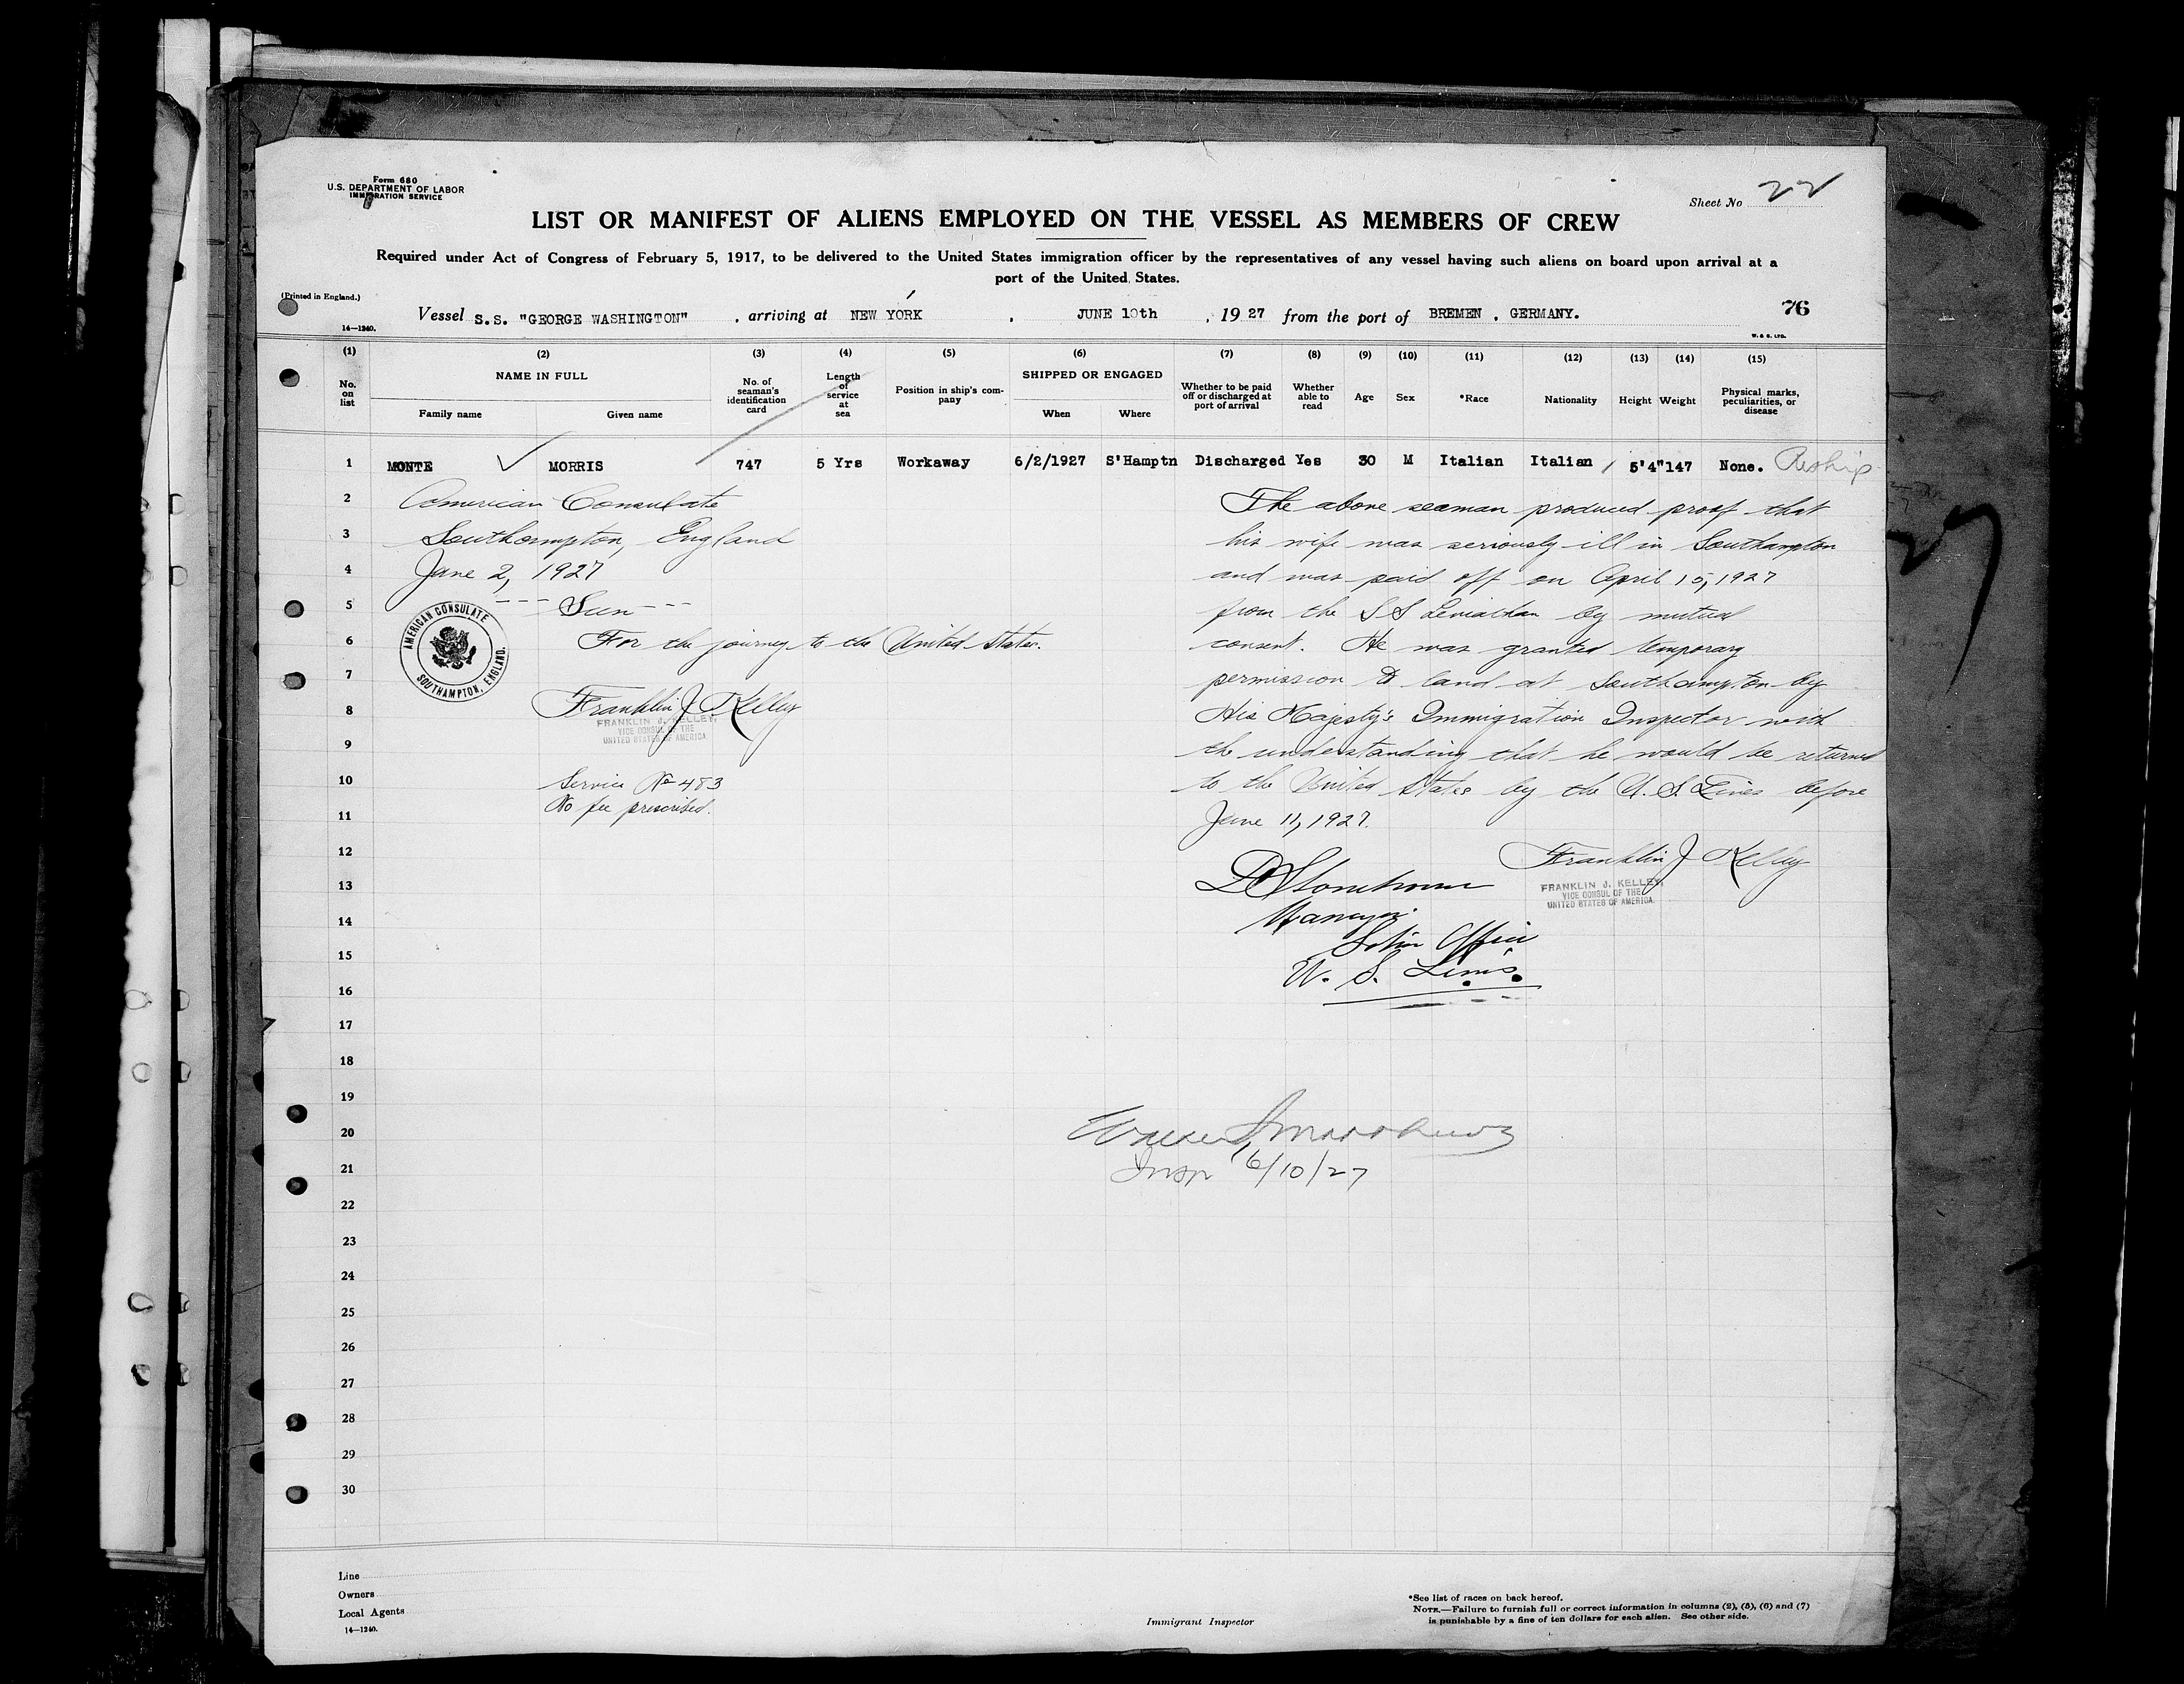 Form 680
U.S. DEPARTMENT OF LABOR
IMMIGRATION SERVICE
Sheet No 22
LIST OR MANIFEST OF ALIENS EMPLOYED ON THE VESSEL AS MEMBERS OF CREW
Required under Act of Congress of February 5, 1917, to be delivered to the United States immigration officer by the representatives of any vessel having such aliens on board upon arrival at a
port of the United States.
(Printed in England.)
14—1240.
Vessel S.S. "GEORGE WASHINGTON" , arriving at NEW YORK , JUNE 10th , 1927 from the port of BREMEN , GERMANY.
76
W. & S. LTD.
(1) (2) (3) (4) (5) (6) (7) (8) (9) (10) (11) (12) (13) (14) (15)
No. on list
NAME IN FULL
Family name Given name
No. of seaman's identification card
Length of service at sea
Position in ship's company
SHIPPED OR ENGAGED
When Where
Whether to be paid off or discharged at port of arrival
Whether able to read
Age
Sex
*Race
Nationality
Height
Weight
Physical marks, peculiarities, or disease
1 MONTE MORRIS 747 5 Yrs Workaway 6/2/1927 S'Hamptn Discharged Yes 30 M Italian Italian 5'4" 147 None. Reship
2 American Consulate
3 Southampton, England
4 June 2, 1927
5 --- Seen ---
6 For the journey to the United States.
7
8 Franklin J Kelley
FRANKLIN J. KELLEY,
VICE CONSUL OF THE
UNITED STATES OF AMERICA
9
10 Service No 483
11 No fee prescribed.
AMERICAN CONSULATE
SOUTHAMPTON, ENGLAND.
The above seaman produced proof that
his wife was seriously ill in Southampton
and was paid off on April 15, 1927
from the SS Leviathan by mutual
consent. He was granted temporary
permission to land at Southampton by
His Majesty's Immigration Inspector with
the understanding that he would be returned
to the United States by the U.S. Lines before
June 11, 1927.
Franklin J Kelley
FRANKLIN J. KELLEY,
VICE CONSUL OF THE
UNITED STATES OF AMERICA.
Manager
Office
U. S. Lines.
12
13
14
15
16
17
18
19
20
Insp 6/10/27
21
22
23
24
25
26
27
28
29
30
Line
Owners
Local Agents
14—1240.
Immigrant Inspector
*See list of races on back hereof.
NOTE.—Failure to furnish full or correct information in columns (2), (5), (6) and (7)
is punishable by a fine of ten dollars for each alien. See other side.